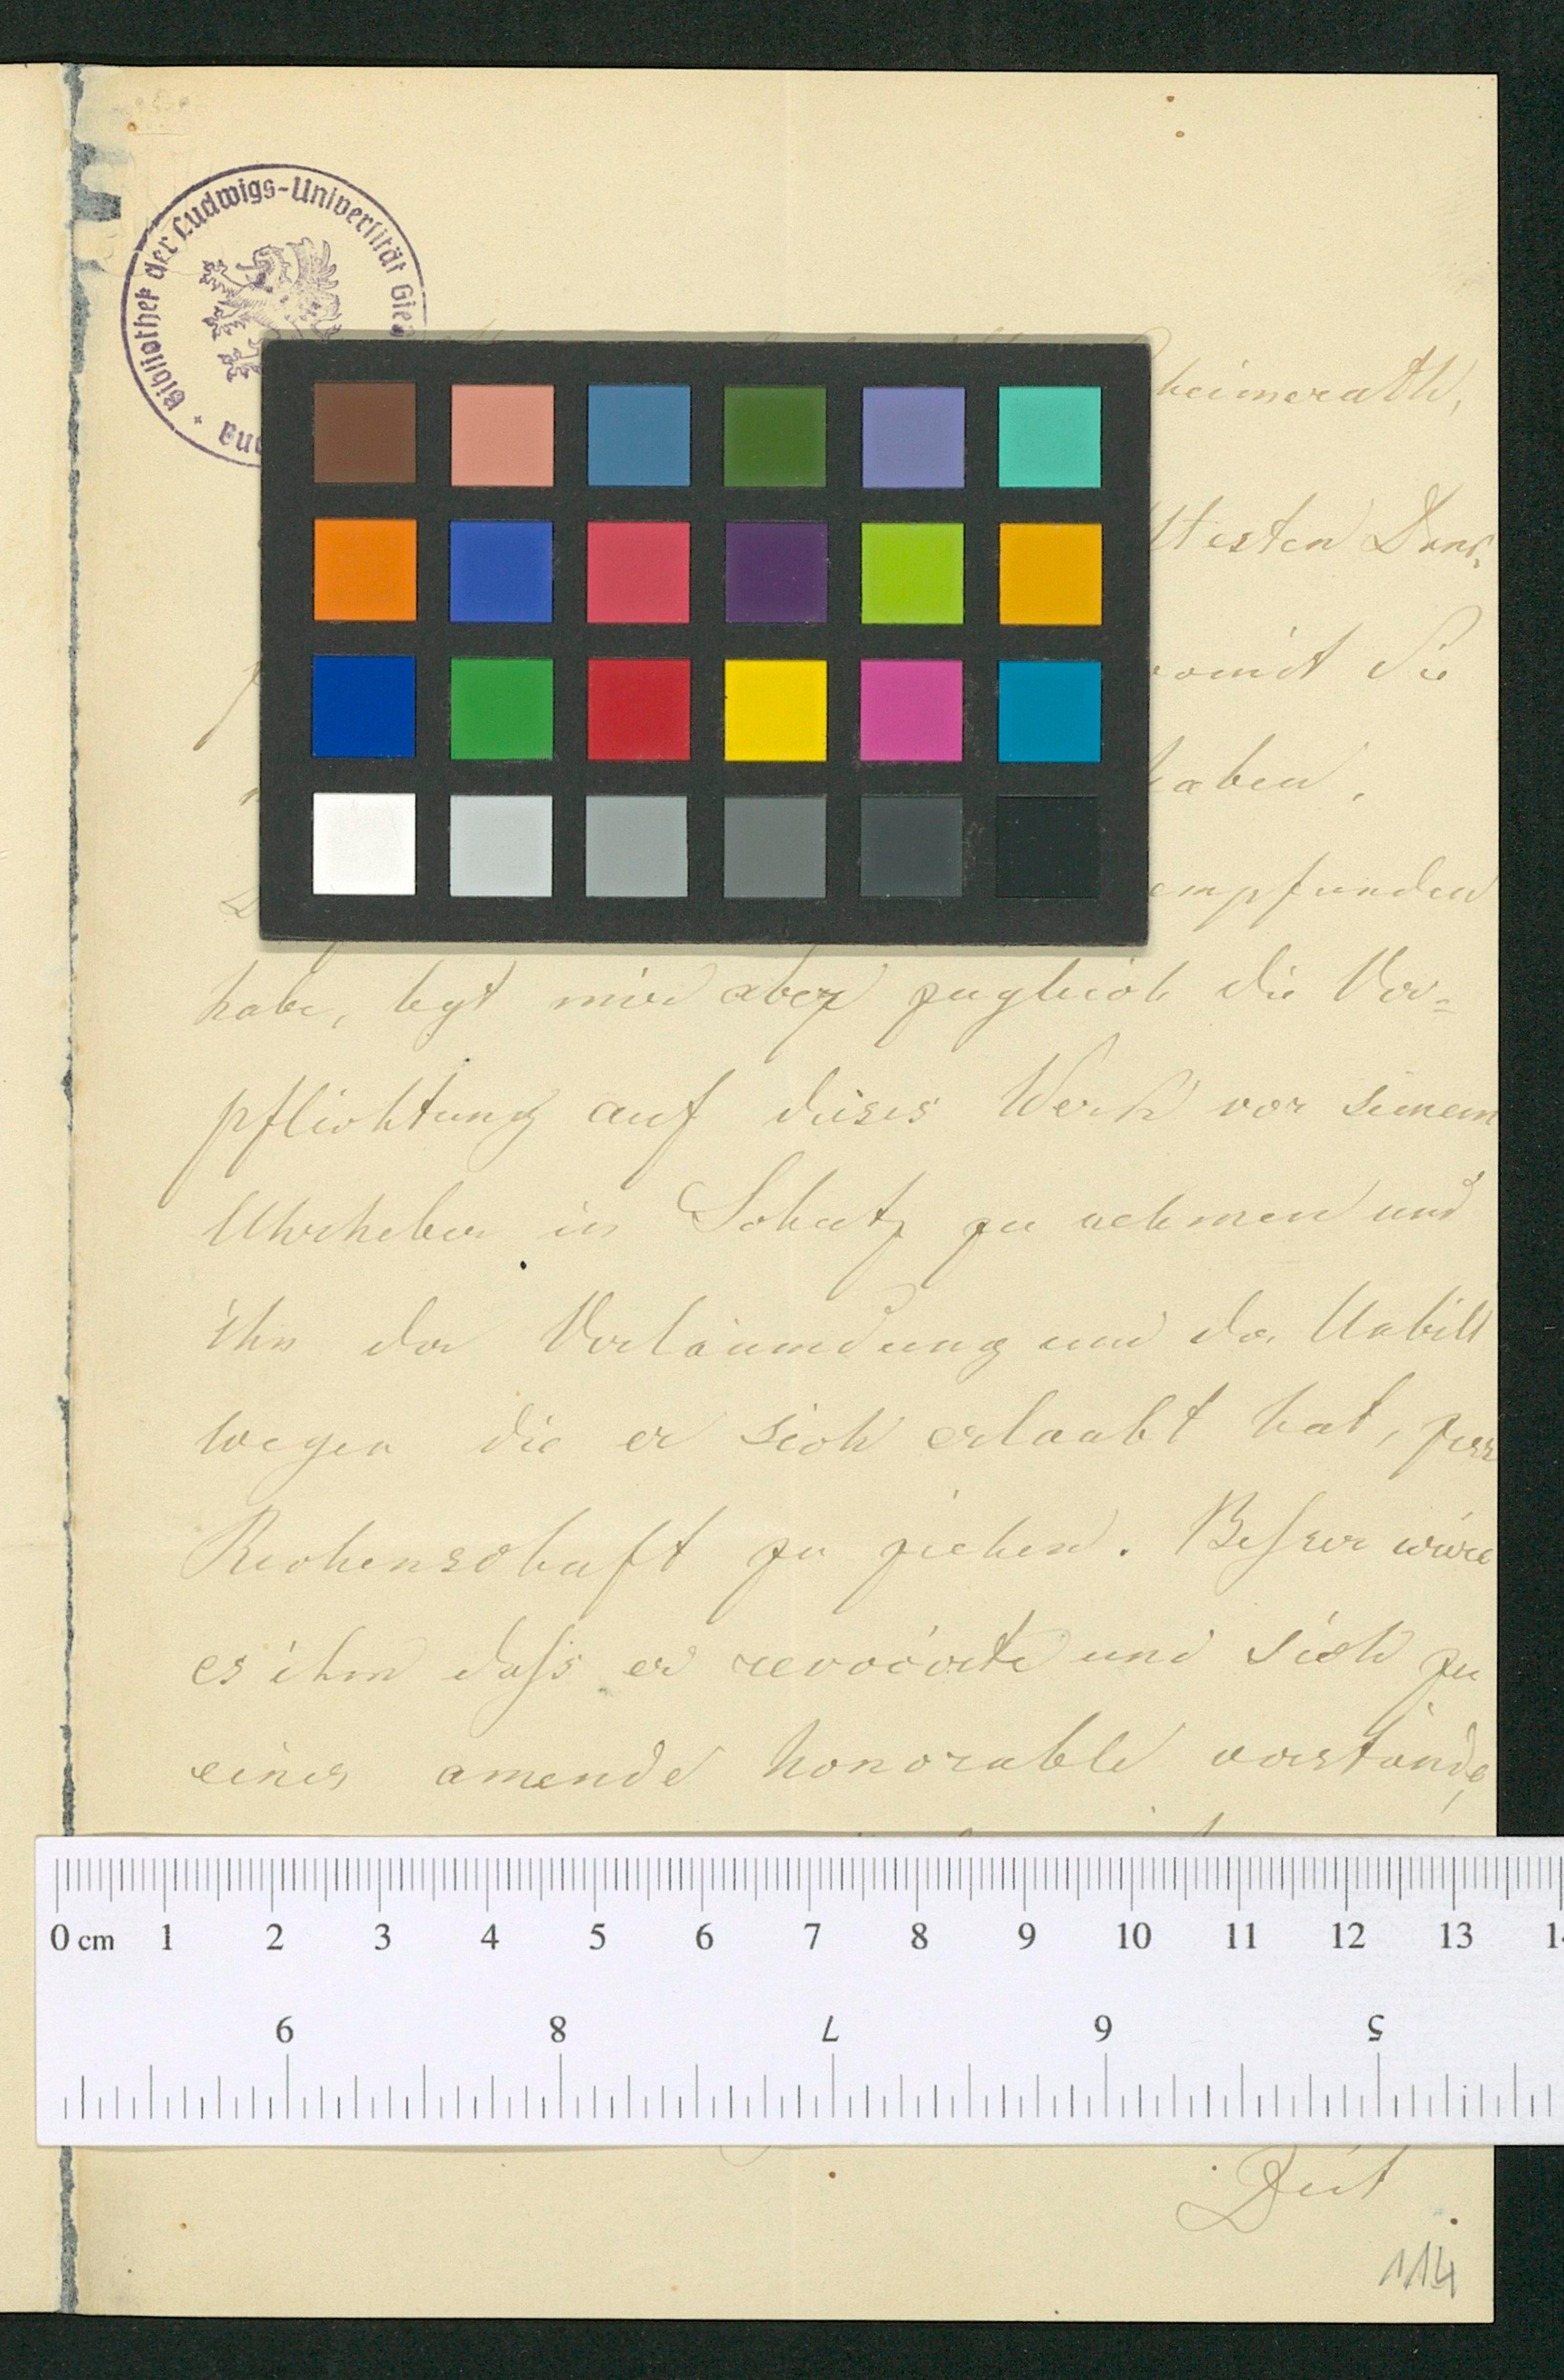 Bibliothek der Ludwigs-Universität Gieß
heimerath,
testen Dank,
womit Sie
haben.
empfunden
habe, legt mir aber zugleich die Ver-
pflichtung auf dieses Werk vor seinem
Uhrheber in Schutz zu nehmen und
ihn der Verläumdung und der Unbill
wegen die er sich erlaubt hat, zur
Rechenschaft zu ziehen. Beſser wäre
es ihm daſs er revocirte und sich zu
einer amende honorable verstände,
0 cm 1 2 3 4 5 6 7 8 9 10 11 12 13 14
9 8 7 6 5
Zeit
114